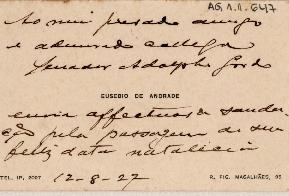 AG.1.1.647
Ao meu presado amigo
e admirado collega
Senador Adolpho Gordo
EUSEBIO DE ANDRADE
envia affectuosa sauda-
ção pela passagem de sua
feliz data natalicia
TEL. IP. 2007 12-8-27 R. FIG. MAGALHÃES, 95